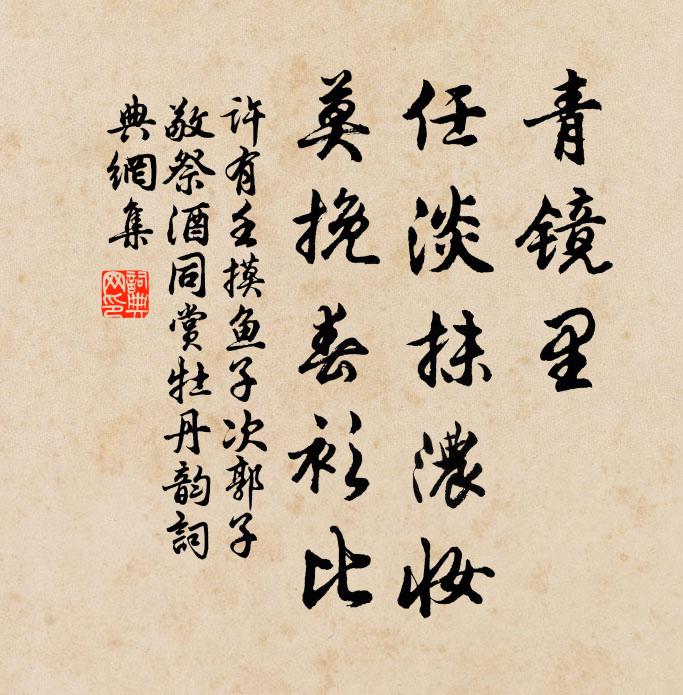 青镜里
任淡抹濃妆
莫挽春衫比
许有壬摸鱼子次郭子
敬祭酒同赏牡丹韵詞
典網集
詞典网印